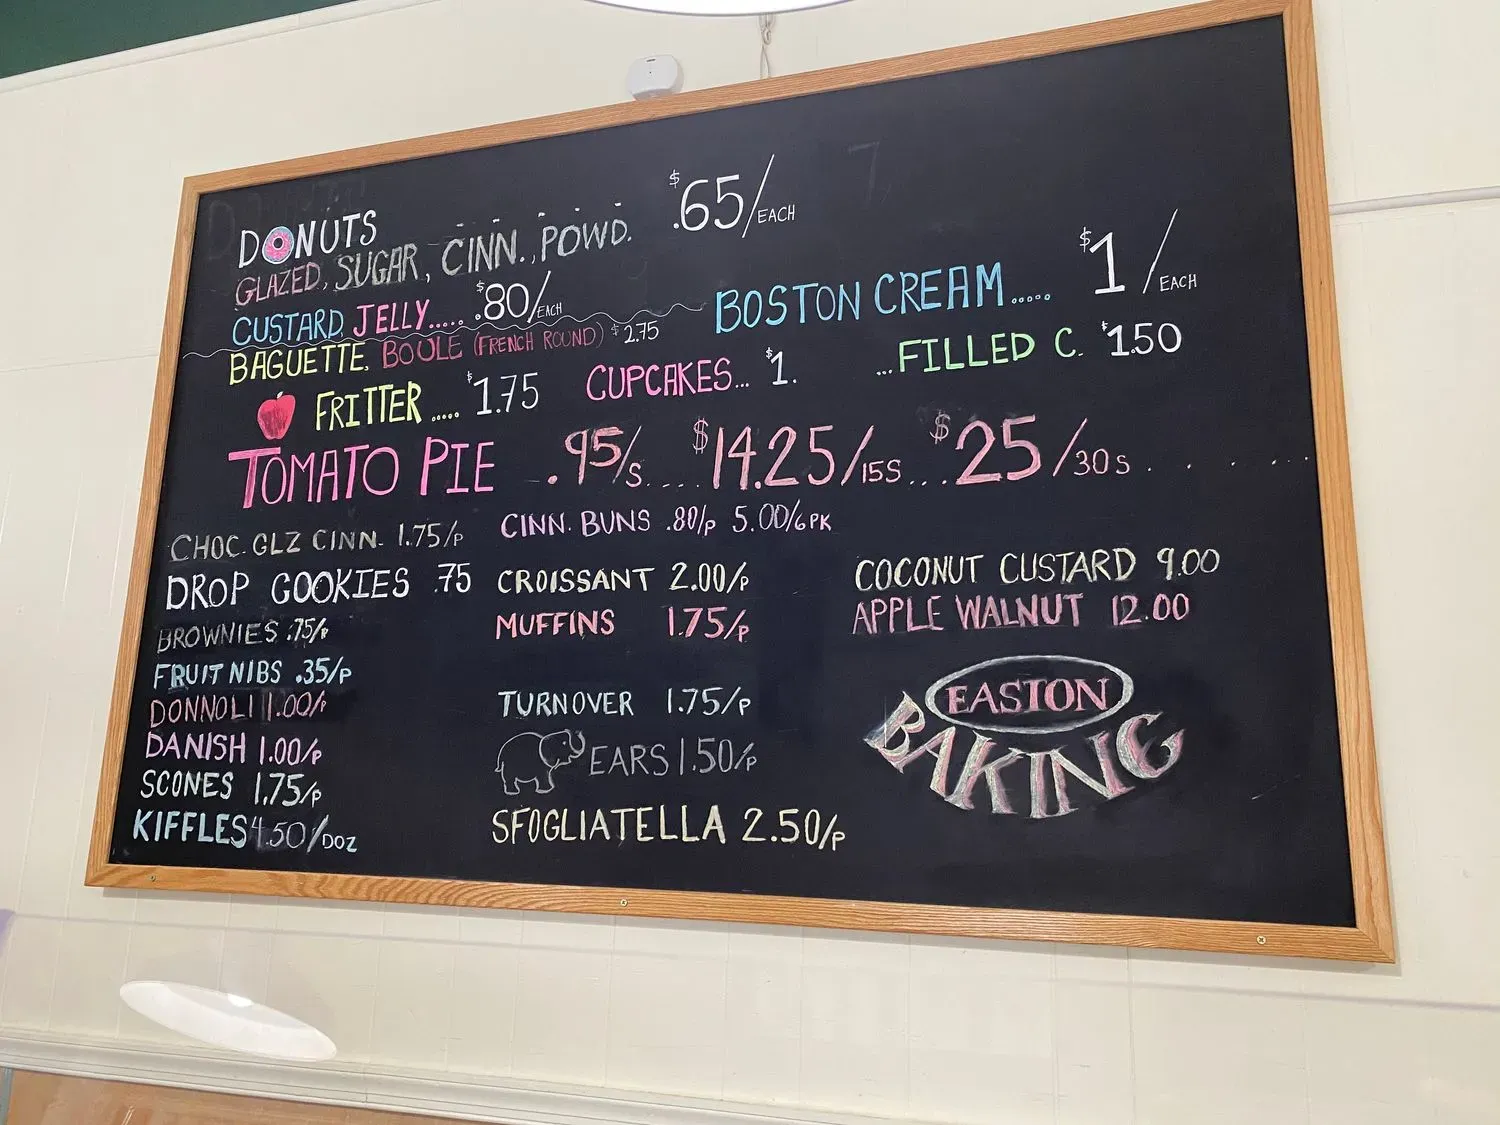 DONUTS
GLAZED, SUGAR, CINN., POWD. $.65/EACH
CUSTARD, JELLY..... $.80/EACH
BOSTON CREAM..... $1/EACH
BAGUETTE, BOULE (FRENCH ROUND) $2.75
FRITTER ..... $1.75
CUPCAKES... $1.
...FILLED C. $1.50
TOMATO PIE .95/S.... $14.25/15S... $25/30S . . . . . .
CHOC. GLZ CINN. 1.75/P
DROP COOKIES .75
BROWNIES .75/P
FRUIT NIBS .35/P
DONNOLI 1.00/P
DANISH 1.00/P
SCONES 1.75/P
KIFFLES 4.50/DOZ
CINN. BUNS .80/P 5.00/6PK
CROISSANT 2.00/P
MUFFINS 1.75/P
TURNOVER 1.75/P
EARS 1.50/P
SFOGLIATELLA 2.50/P
COCONUT CUSTARD 9.00
APPLE WALNUT 12.00
EASTON
BAKING